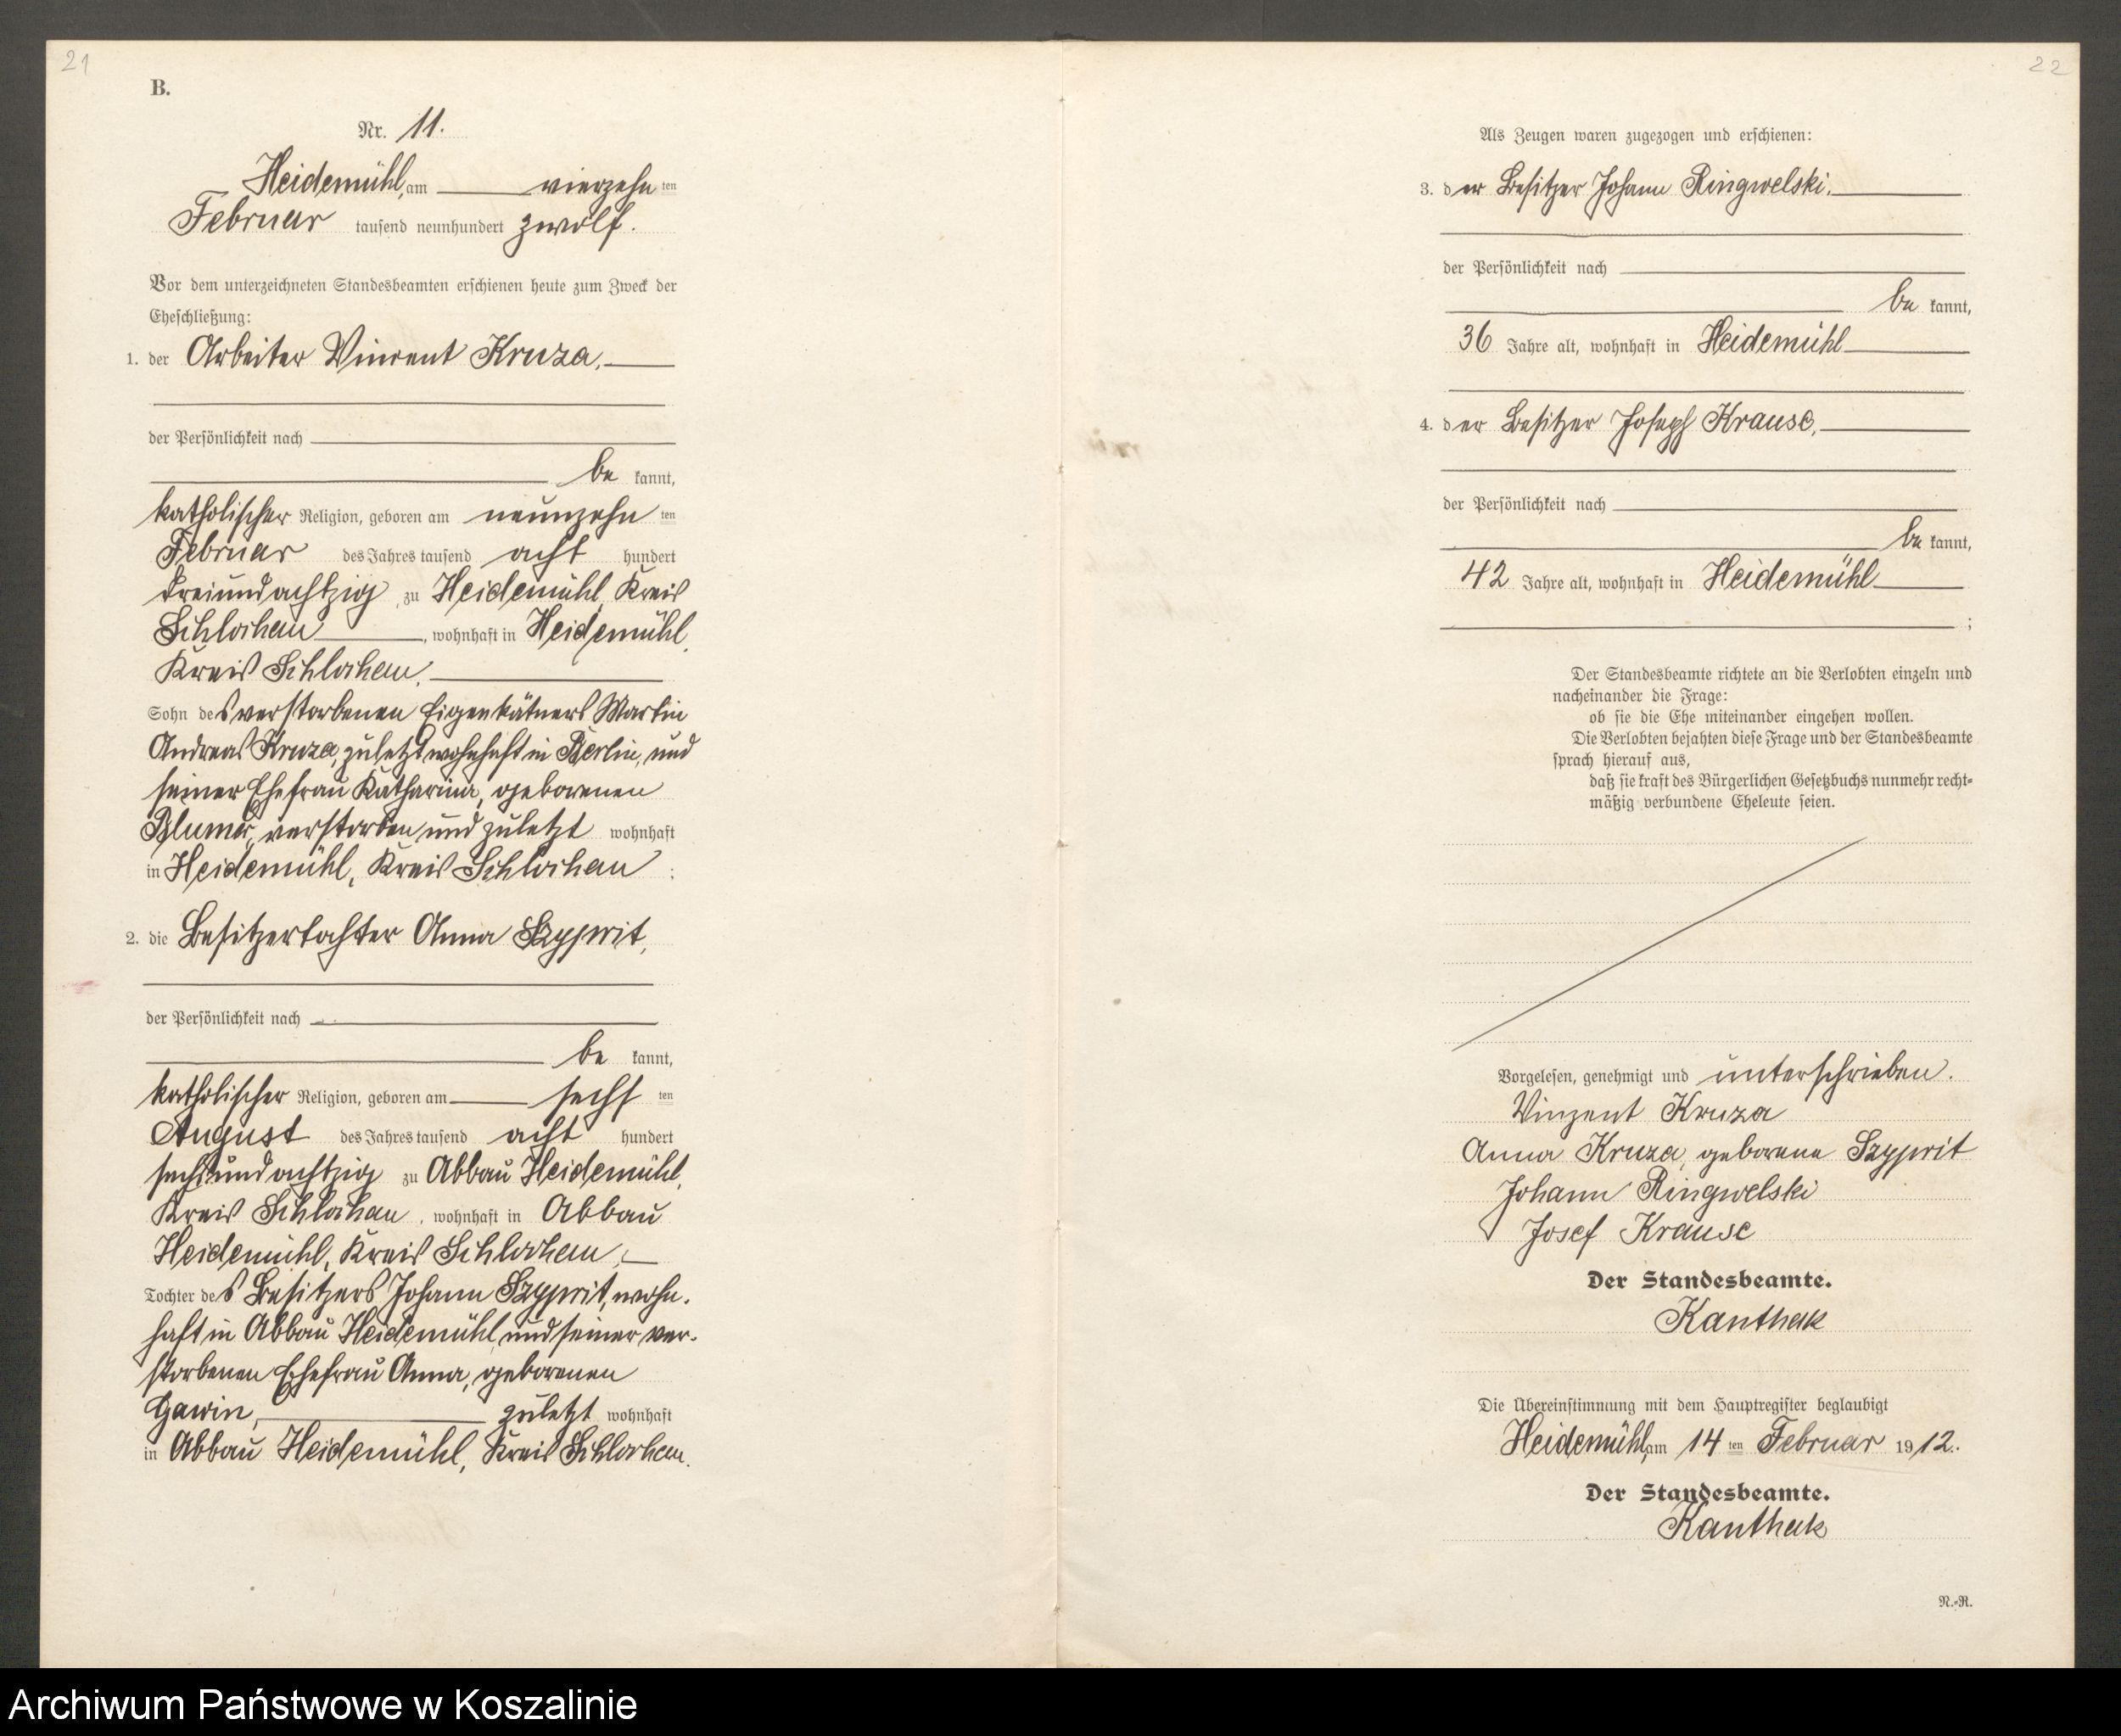 21
B.
Nr. 11.
Heidemühl, am vierzehn ten
Februar tausend neunhundert zwölf.
Vor dem unterzeichneten Standesbeamten erschienen heute zum Zweck der
Eheschließung:
1. der Arbeiter Vincent Kruza,
der Persönlichkeit nach
be kannt,
katholischer Religion, geboren am neunzehn ten
Februar des Jahres tausend acht hundert
dreiundachtzig, zu Heidemühl, Kreis
Schlochau, wohnhaft in Heidemühl,
Kreis Schlochau,
Sohn des verstorbenen Eigenkätners Martin
Andreas Kruza, zuletzt wohnhaft in Berlin, und
seiner Ehefrau Katharina, geborenen
verstorben und zuletzt wohnhaft
in Heidemühl, Kreis Schlochau ;
2. die Besitzertochter Anna Szyprit,
der Persönlichkeit nach
be kannt,
katholischer Religion, geboren am sechs ten
August des Jahres tausend acht hundert
sechsundachtzig zu Abbau Heidemühl,
Kreis Schlochau, wohnhaft in Abbau
Heidemühl, Kreis Schlochau,
Tochter des Besitzers Johann Szyprit, wohn-
haft in Abbau Heidemühl, und seiner ver-
storbenen Ehefrau Anna, geborenen
Gawin, zuletzt wohnhaft
in Abbau Heidemühl, Kreis Schlochau.
22
Als Zeugen waren zugezogen und erschienen:
3. der Besitzer Johann Ringwelski,
der Persönlichkeit nach
be kannt,
36 Jahre alt, wohnhaft in Heidemühl
4. der Besitzer Joseph Krause,
der Persönlichkeit nach
be kannt,
42 Jahre alt, wohnhaft in Heidemühl
;
Der Standesbeamte richtete an die Verlobten einzeln und
nacheinander die Frage:
ob sie die Ehe miteinander eingehen wollen.
Die Verlobten bejahten diese Frage und der Standesbeamte
sprach hierauf aus,
daß sie kraft des Bürgerlichen Gesetzbuchs nunmehr recht-
mäßig verbundene Eheleute seien.
Vorgelesen, genehmigt und unterschrieben.
Vinzent Kruza
Anna Kruza, geborene Szyprit
Johann Ringwelski
Josef Krause
Der Standesbeamte.
Kanthak
Die Übereinstimmung mit dem Hauptregister beglaubigt
Heidemühl, am 14 ten Februar 1912.
Der Standesbeamte.
Kanthak
N.-R.
Archiwum Państwowe w Koszalinie